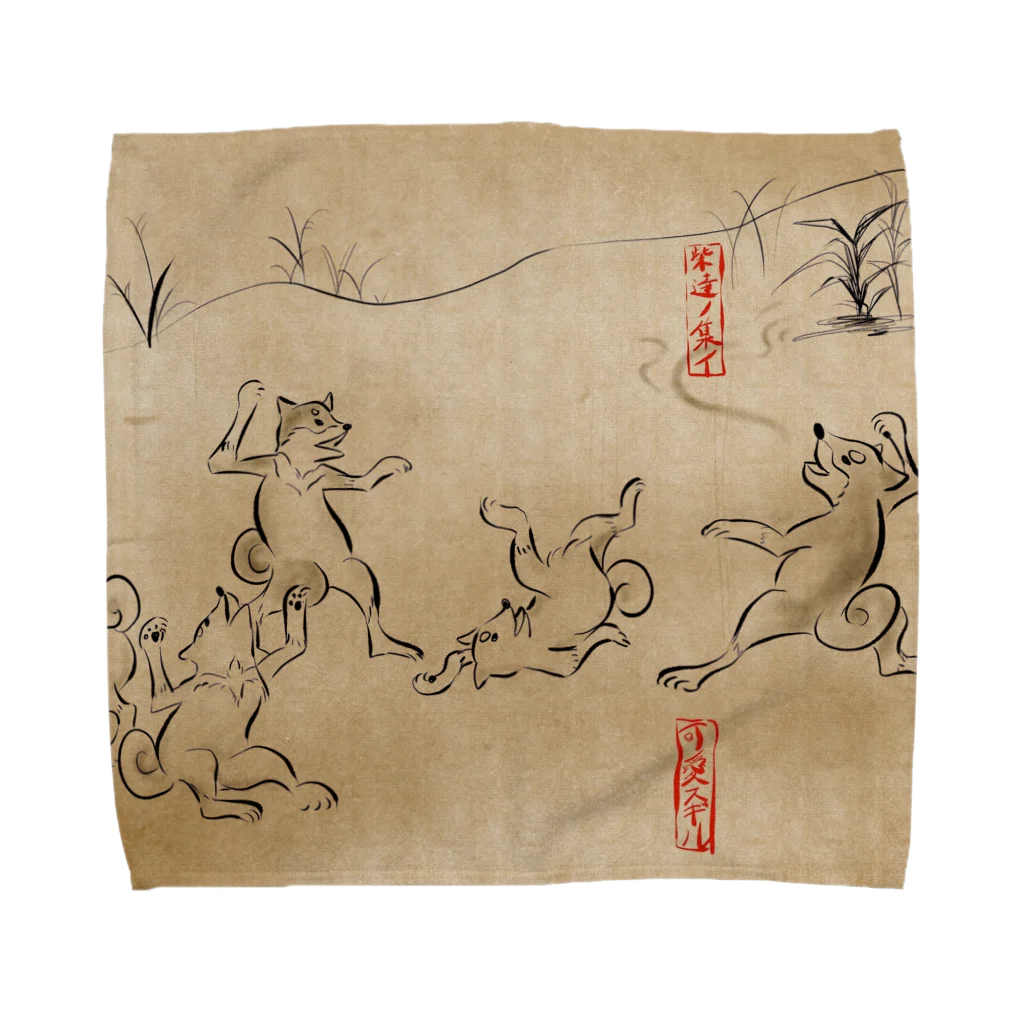 柴達ノ集イ
可愛スギル